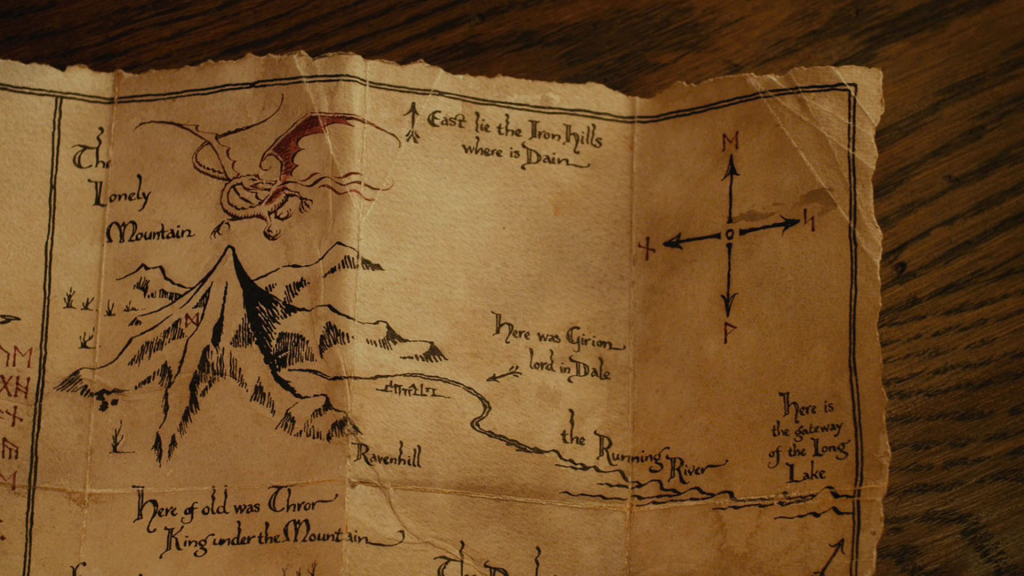 The
Lonely
Mountain
East lie the Iron Hills
where is Dain
ᛖ
ᚾ ᛋ
ᚹ
ᛞ
Here was Girion
lord in Dale
the Running River
Here is
the gateway
of the Long
Lake
Ravenhill
Here of old was Thror
King under the Mountain
The